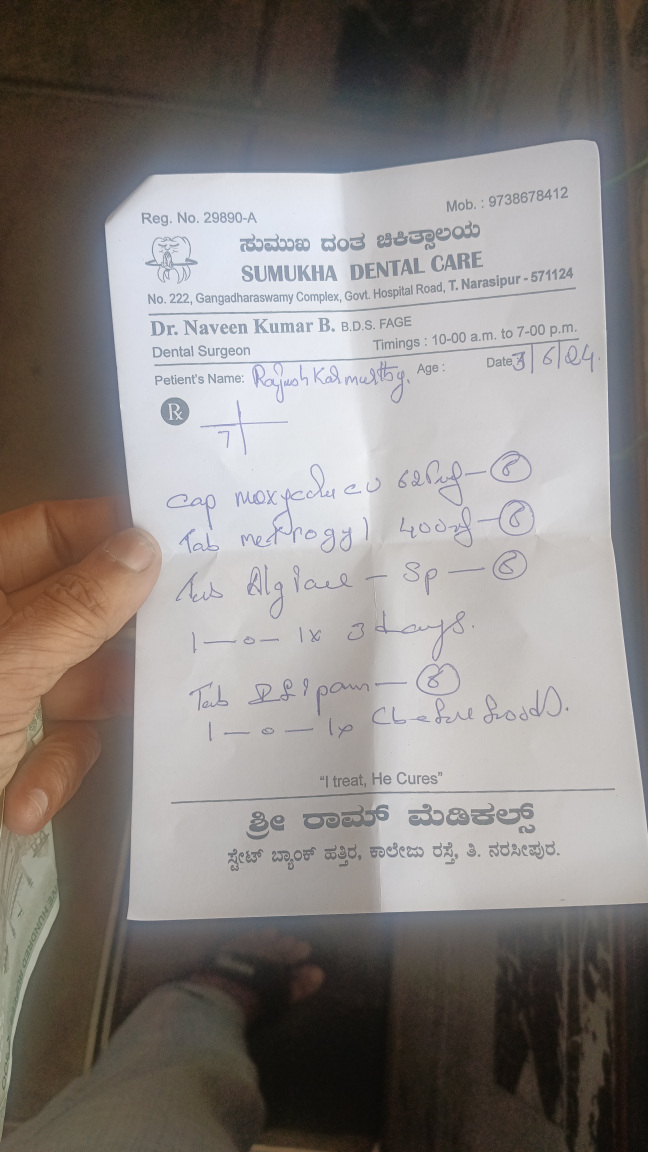 Reg. No. 29890-A
Mob. : 9738678412
ಸುಮುಖ ದಂತ ಚಿಕಿತ್ಸಾಲಯ
SUMUKHA DENTAL CARE
No. 222, Gangadharaswamy Complex, Govt. Hospital Road, T. Narasipur - 571124
Dr. Naveen Kumar B. B.D.S. FAGE
Dental Surgeon
Timings : 10-00 a.m. to 7-00 p.m.
Petient's Name: Age : Date 3/6/24.
Rx
7
Cap 625mg — 6
Tab metrogyl 400mg — 6
Tab — Sp — 6
1—0—1 x 3 days.
Tab — 6
1—0—1 x (before food).
"I treat, He Cures"
ಶ್ರೀ ರಾಮ್ ಮೆಡಿಕಲ್ಸ್
ಸ್ಟೇಟ್ ಬ್ಯಾಂಕ್ ಹತ್ತಿರ, ಕಾಲೇಜು ರಸ್ತೆ, ತಿ. ನರಸೀಪುರ.